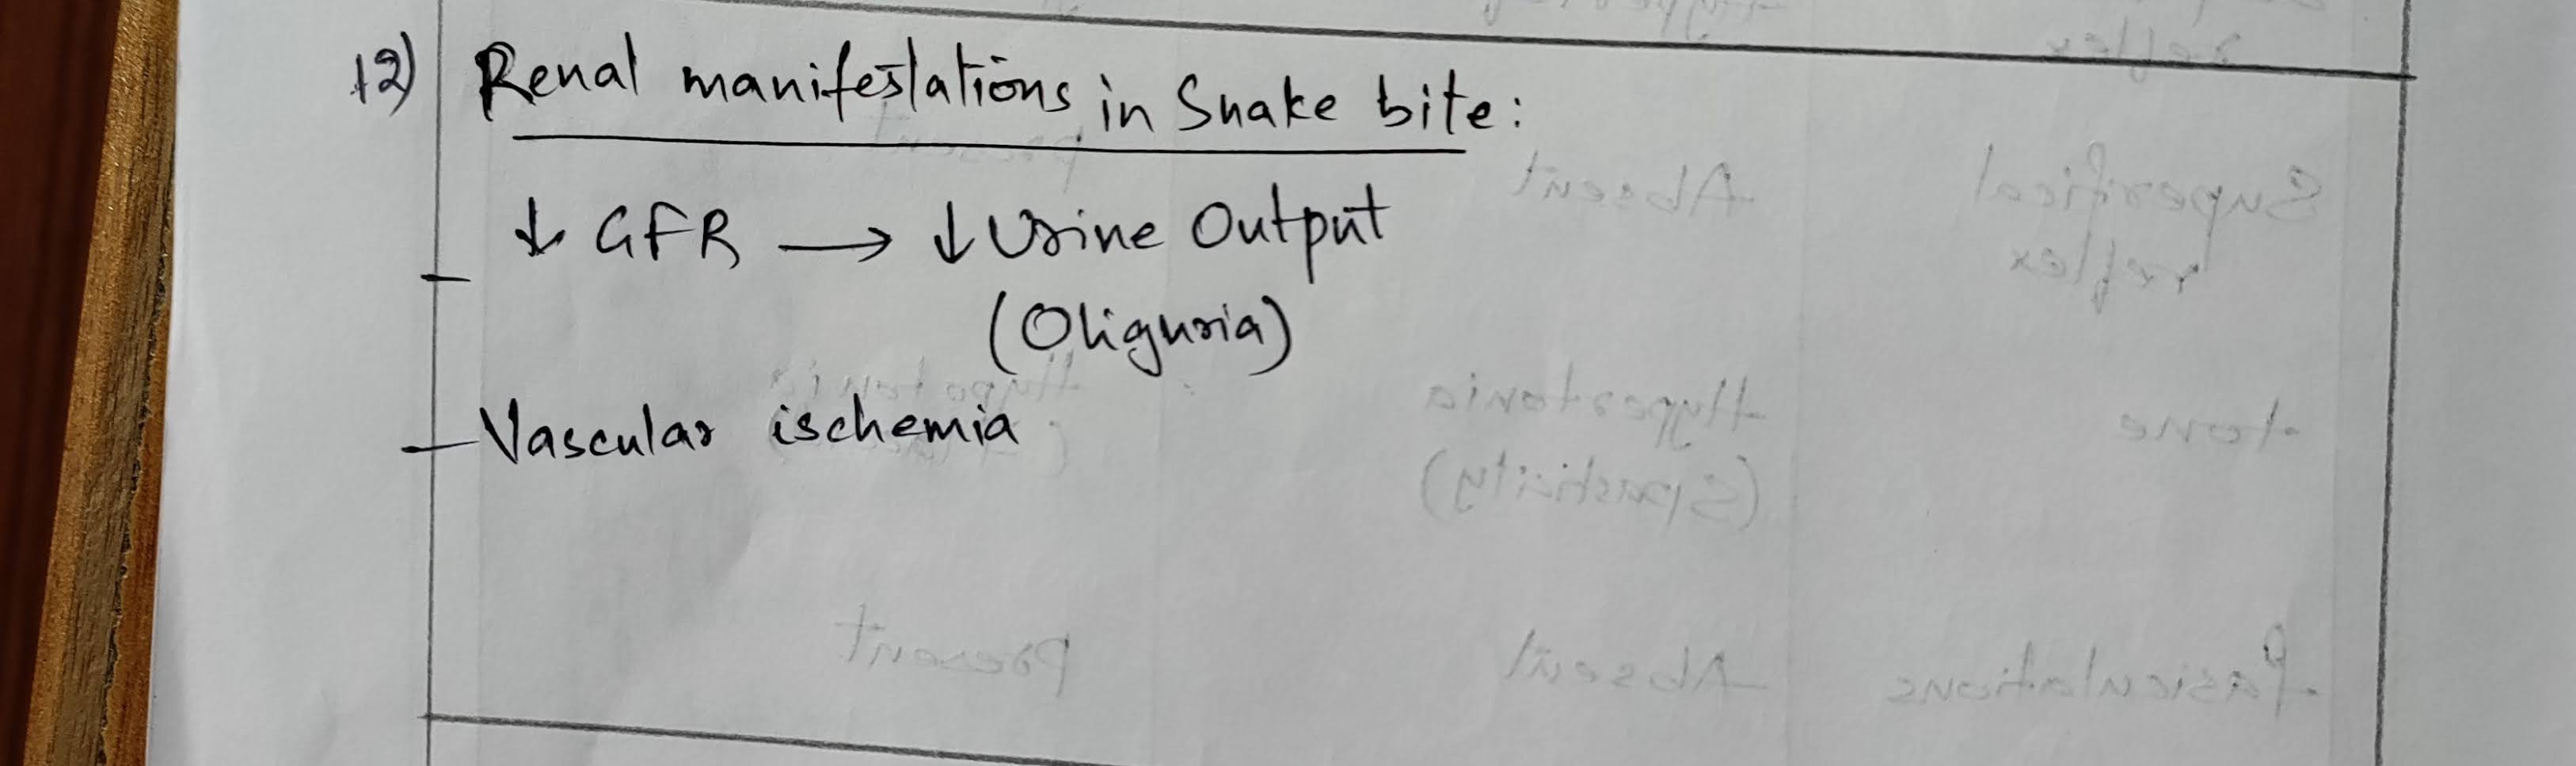 12) Renal manifestations in Snake bite:
↓ GFR → ↓ Urine Output
(Oliguria)
- Vascular ischemia